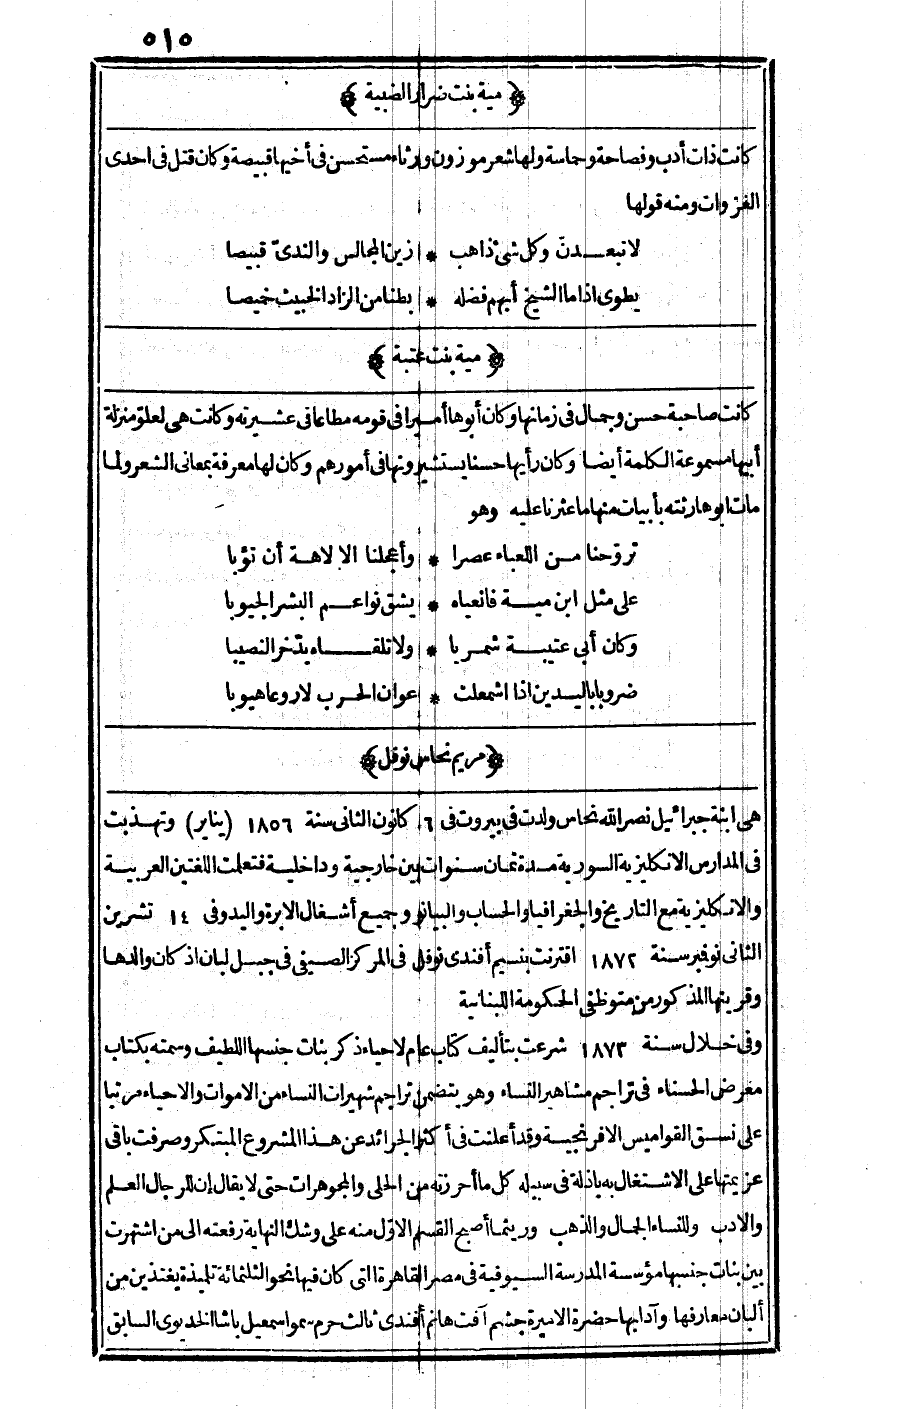 ٥١٥
﴿ مية بنت ضرار الضبية ﴾
كانت ذات أدب وفصاحة وحماسة ولها شعر موزون ورثاء مستحسن فى أخيها قبيصة وكان قتل فى احدى
الغزوات ومنه قولها
لا تبعدن وكل شئ ذاهب * زين المجالس والندىّ قبيصا
يطوى اذا ما الشيخ أبهم فضله * بطنا من الزاد الخبيث خميصا
﴿ مية بنت عتبة ﴾
كانت صاحبة حسن وجمال فى زمانها وكان أبوها أميرا فى قومه مطاعا فى عشيرته وكانت هى لعلو منزلة
أبيها مسموعة الكلمة أيضا وكان رأيها حسنا يستشيرونها فى أمورهم وكان لها معرفة بمعانى الشعر ولما
مات ابوها رثته بأبيات منها ما عثرنا عليه وهو
تروّحنا من اللعباء عصرا * وأعجلنا الالاهة أن تؤبا
على مثل ابن مية فانعياه * يشق نواعم البشر الجيوبا
وكان أبى عتيبة شمريا * ولا تلقاه يدّخر النصيبا
ضروبا باليدين اذا اشمعلت * عوان الحرب لا روعا هيوبا
﴿ مريم نحاس نوفل ﴾
هى ابنة جبرائيل نصر الله نحاس ولدت فى بيروت فى ٦ كانون الثانى سنة ١٨٥٦ (يناير) وتهذبت
فى المدارس الانكليزية السورية مدة ثمان سنوات بين خارجية وداخلية فتعلمت اللغتين العربية
والانكليزية مع التاريخ والجغرافيا والحساب والبيانو وجميع أشغال الابرة واليد وفى ١٤ تشرين
الثانى نوفمبر سنة ١٨٧٢ اقترنت بنسيم أفندى نوفل فى المركز الصيفى فى جبل لبنان اذ كان والدها
وقرينها المذكور من متوظفى الحكومة اللبنانية
وفى خلال سنة ١٨٧٣ شرعت بتأليف كتاب عام لاحياء ذكر بنات جنسها اللطيف وسمته بكتاب
معرض الحسناء فى تراجم مشاهير النساء وهو يتضمن تراجم شهيرات النساء من الاموات والاحياء مرتبا
على نسق القواميس الافرنجية وقد أعلنت فى أكثر الجرائد عن هذا المشروع المبتكر وصرفت باقى
عزيمتها على الاشتغال به باذلة فى سبيله كل ما أحرزته من الحلى والمجوهرات حتى لا يقال إن للرجال العلم
والادب وللنساء الجمال والذهب وريثما أصبح القسم الاوّل منه على وشك النهاية رفعته الى من اشتهرت
بين بنات جنسها مؤسسة المدرسة السيوفية فى مصر القاهرة التى كان فيها نحو الثلثمائة تلميذة يغتذين من
ألبان معارفها وآدابها حضرة الاميرة جشم آفت هانم أفندى ثالث حرم سمو اسمعيل باشا الخديوى السابق